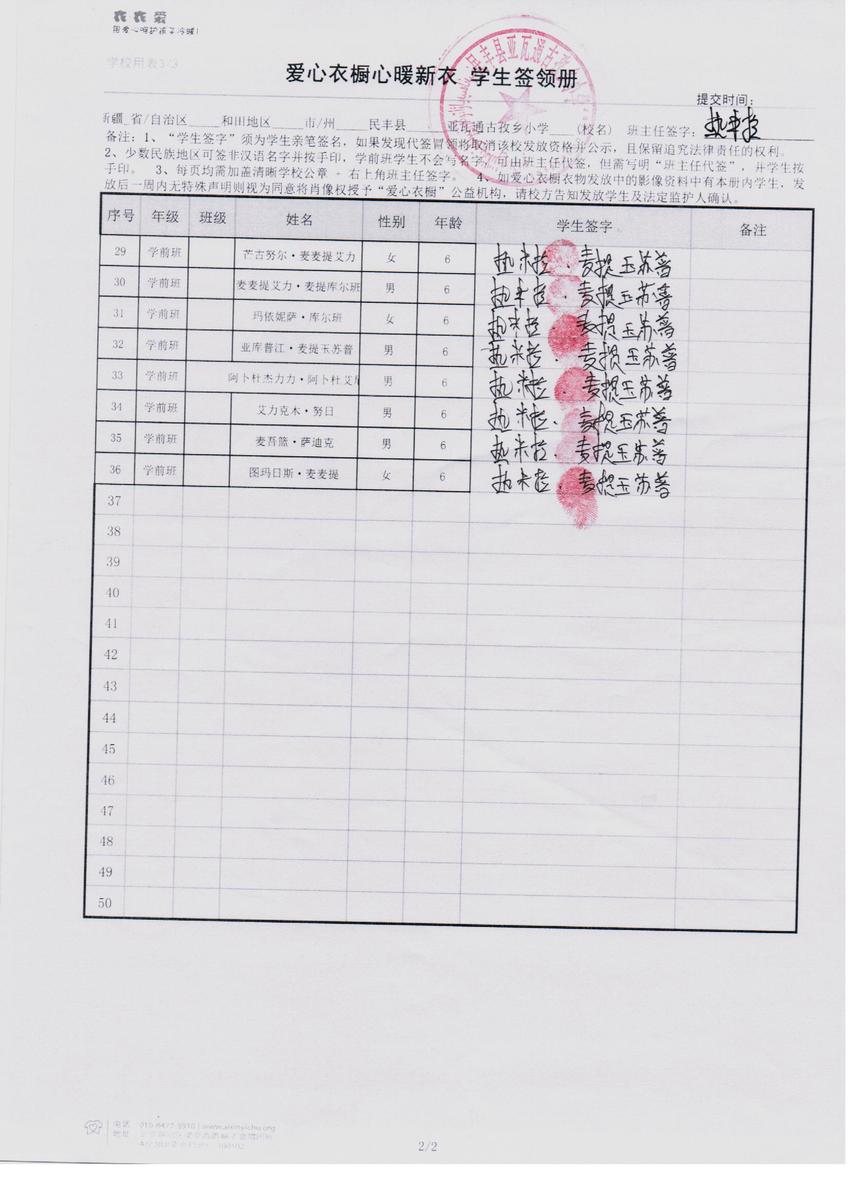 衣衣爱
用爱心呵护孩子冷暖!
学校用表3/3
爱心衣橱心暖新衣 学生签领册
提交时间:
新疆 省/自治区 和田地区 市/州 民丰县 亚瓦通古孜乡小学 (校名) 班主任签字: 热米拉
备注:1、“学生签字”须为学生亲笔签名,如果发现代签冒领将取消该校发放资格并公示,且保留追究法律责任的权利。
2、少数民族地区可签非汉语名字并按手印,学前班学生不会写名字,可由班主任代签,但需写明“班主任代签”,并学生按
手印。 3、每页均需加盖清晰学校公章 + 右上角班主任签字。 4、如爱心衣橱衣物发放中的影像资料中有本册内学生,发
放后一周内无特殊声明则视为同意将肖像权授予“爱心衣橱”公益机构,请校方告知发放学生及法定监护人确认。
序号 年级 班级 姓名 性别 年龄 学生签字 备注
29 学前班 芒古努尔·麦麦提艾力 女 6 热米拉·麦提玉苏普
30 学前班 麦麦提艾力·麦提库尔班 男 6 热米拉·麦提玉苏普
31 学前班 玛依妮萨·库尔班 女 6 热米拉·麦提玉苏普
32 学前班 亚库普江·麦提玉苏普 男 6 热米拉·麦提玉苏普
33 学前班 阿卜杜杰力力·阿卜杜艾尼 男 6 热米拉·麦提玉苏普
34 学前班 艾力克木·努日 男 6 热米拉·麦提玉苏普
35 学前班 麦吾篮·萨迪克 男 6 热米拉·麦提玉苏普
36 学前班 图玛日斯·麦麦提 女 6 热米拉·麦提玉苏普
37
38
39
40
41
42
43
44
45
46
47
48
49
50
电话 010-6477-5910 | www.aixinyichu.org
地址
2/2